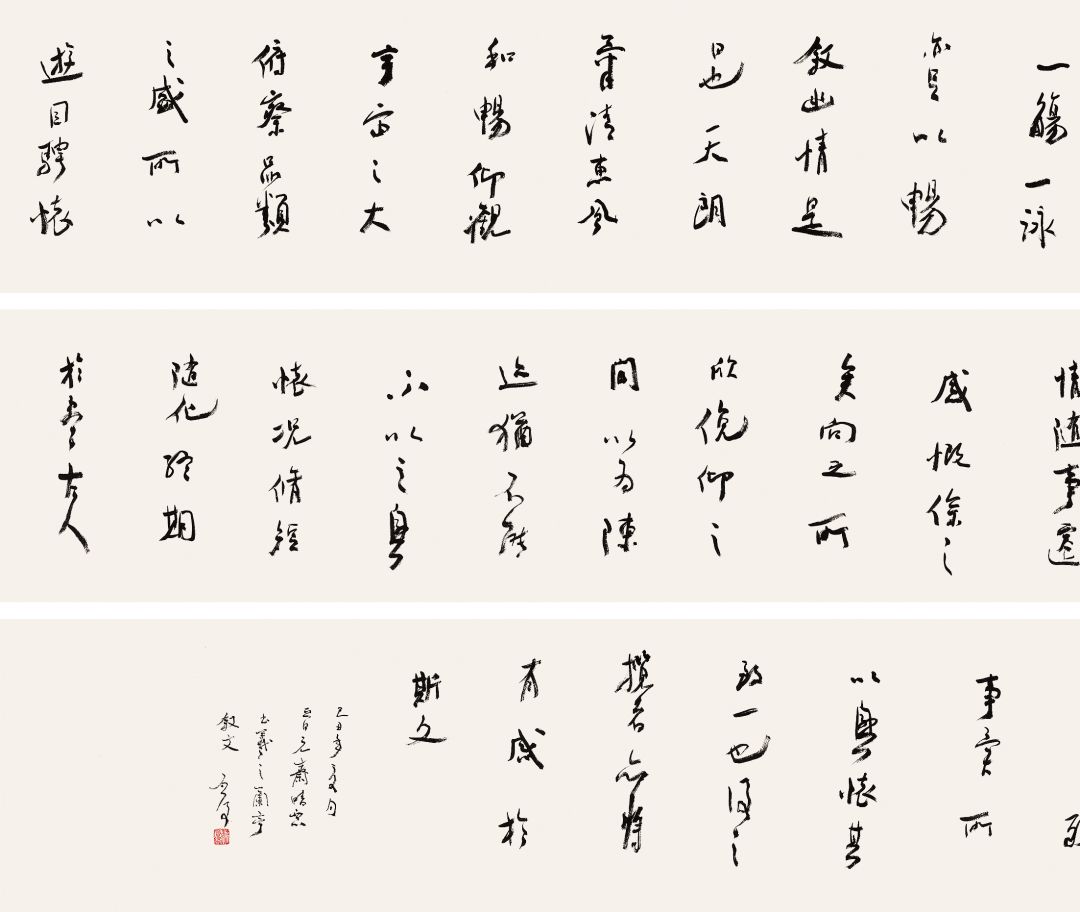 一觴一詠
亦足以暢
敘幽情是
日也天朗
氣清惠風
和暢仰觀
宇宙之大
俯察品類
之盛所以
遊目騁懷
情隨事遷
感慨係之
矣向之所
欣俛仰之
間以為陳
迹猶不能
不以之興
懷況脩短
隨化終期
於盡古人
事異所
以興懷其
致一也後之
攬者亦將
有感於
斯文
丑
齋晴窗
書羲之蘭亭
敘文